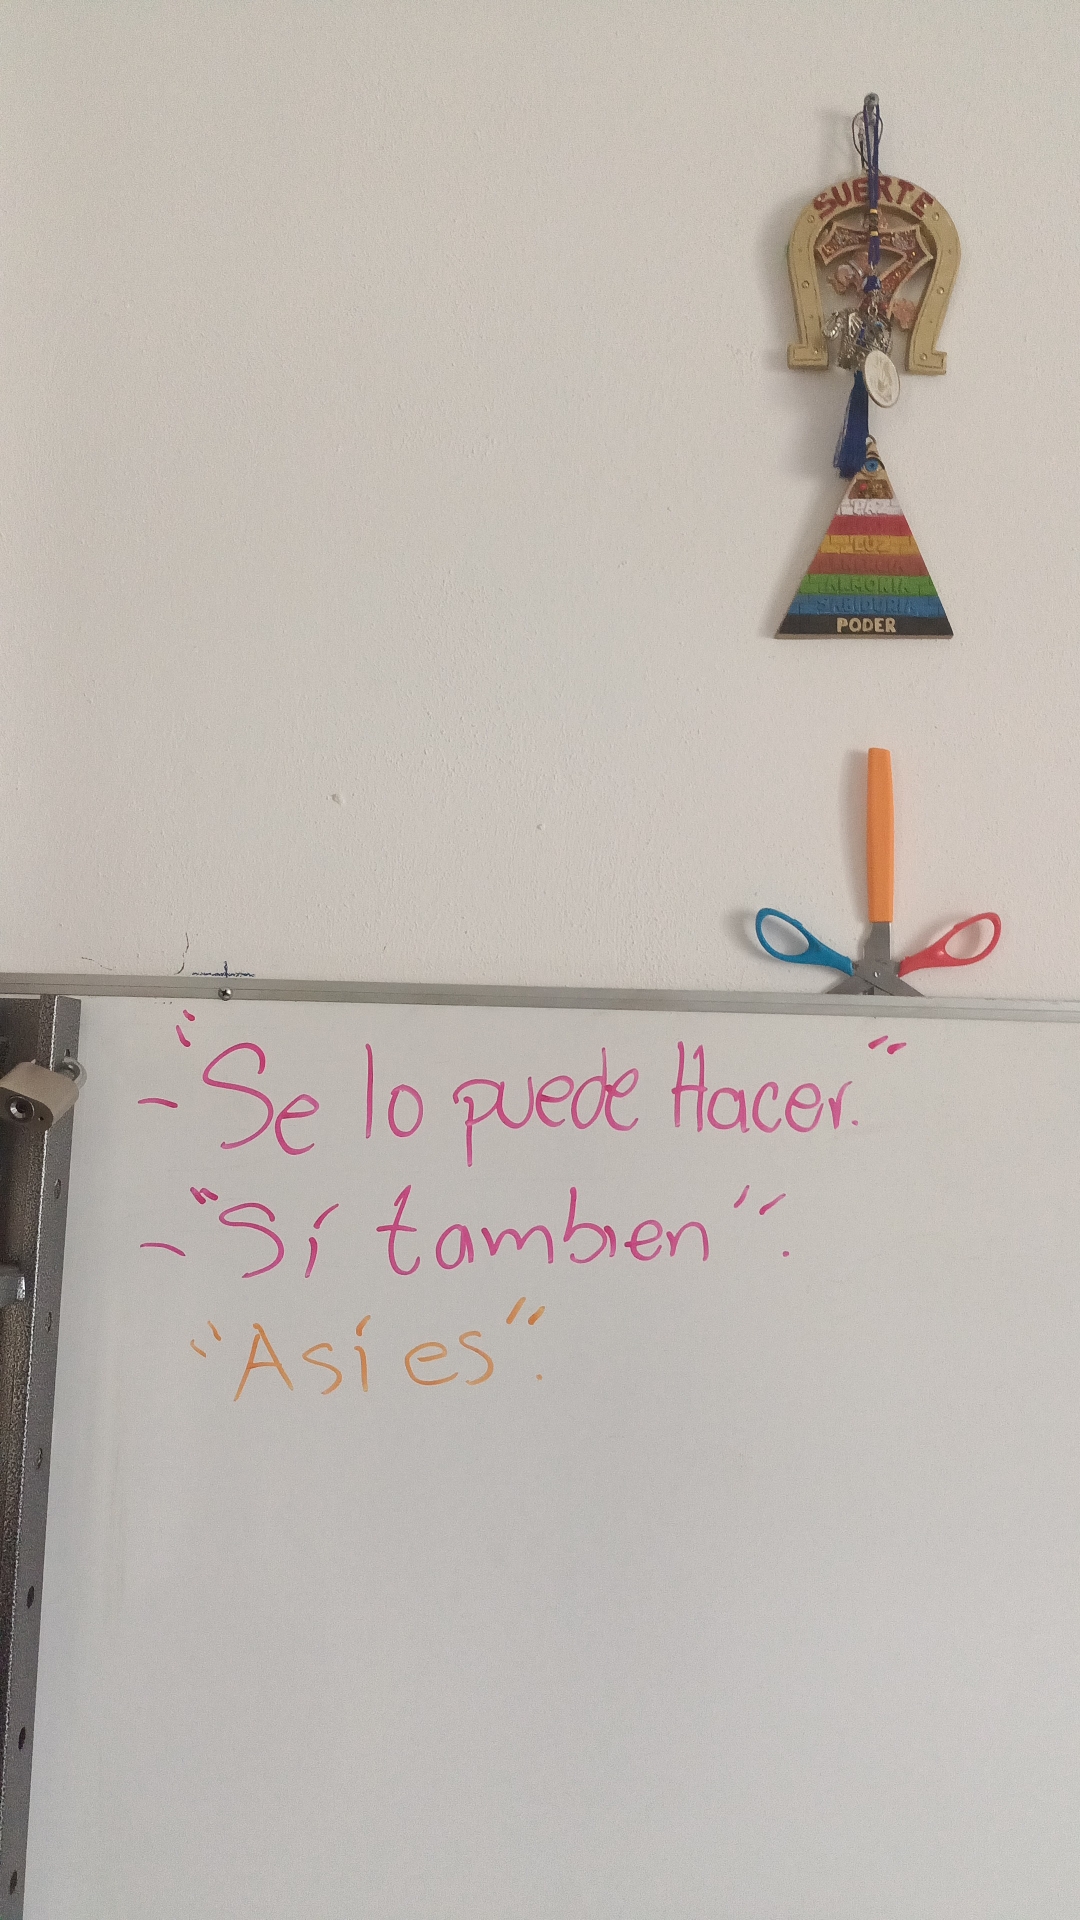 SUERTE
7
PAZ
LUZ
ARMONIA
SABIDURIA
PODER
- "Se lo puede Hacer."
- "Sí tambien".
"Así es".